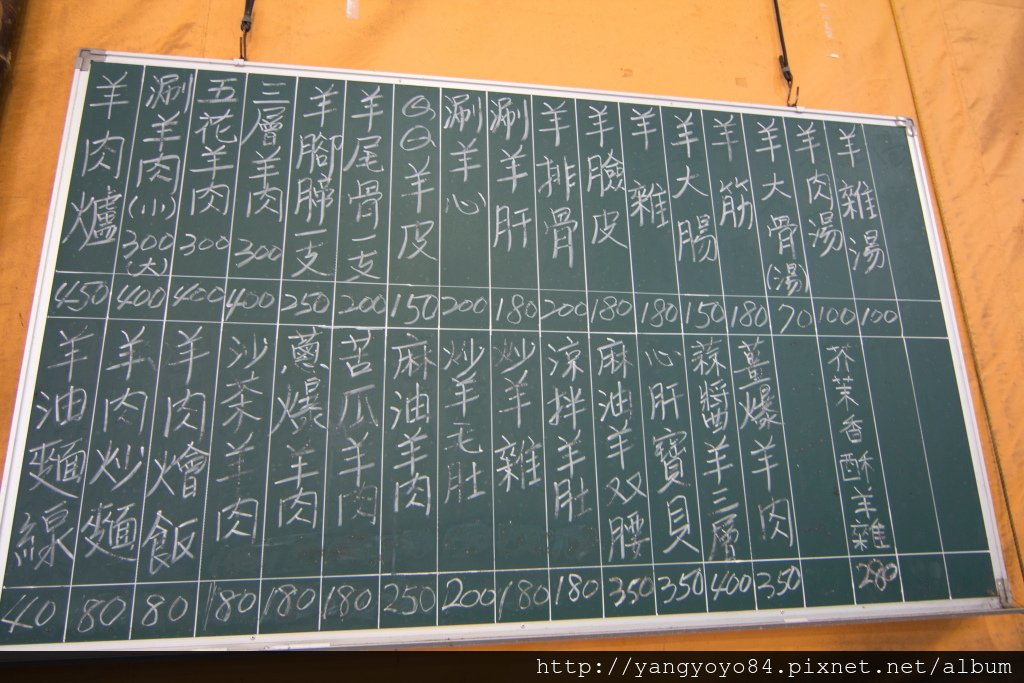 羊肉爐 450
涮羊肉(小)300(大) 400
五花羊肉 300 400
三層羊肉 300 400
羊腳蹄一支 250
羊尾骨一支 200
QQ羊皮 150
涮羊心 200
涮羊肝 180
羊排骨 200
羊臉皮 180
羊雜 180
羊大腸 150
羊筋 180
羊大骨(湯) 70
羊肉湯 100
羊雜湯 100
羊油麵線 40
羊肉炒麵 80
羊肉燴飯 80
沙茶羊肉 180
蔥爆羊肉 180
苦瓜羊肉 180
麻油羊肉 250
炒羊毛肚 200
炒羊雜 180
涼拌羊肚 180
麻油羊双腰 350
心肝寶貝 350
蒜醬羊三層 400
薑爆羊肉 350
芥茉香酥羊雜 280
http://yangyoyo84.pixnet.net/album